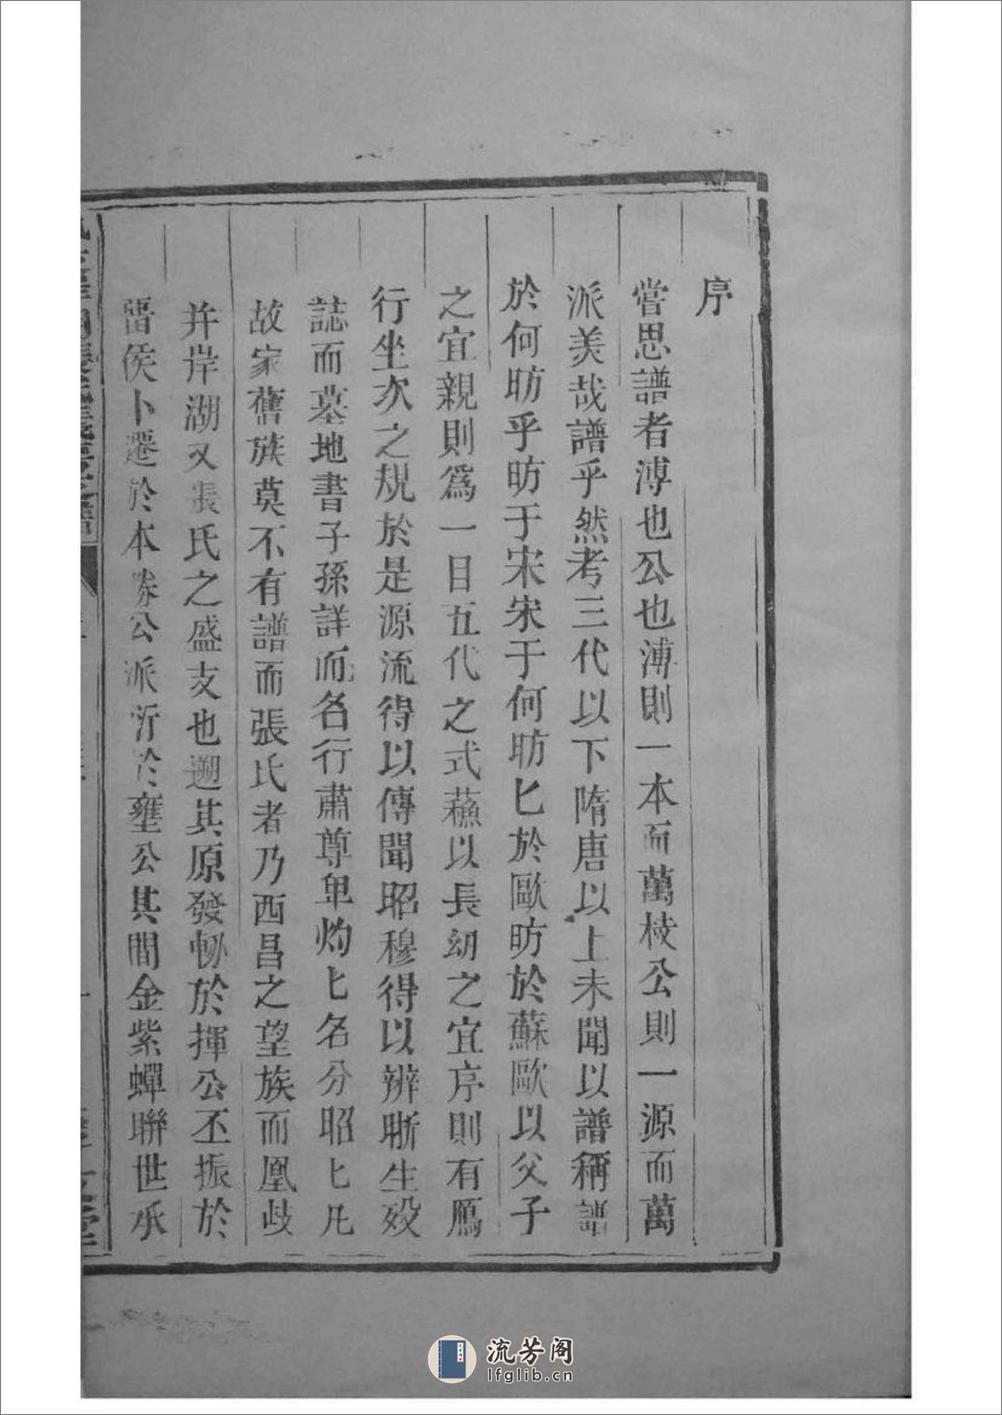 序
嘗思譜者溥也公也溥則一本而萬枝公則一源而萬
派美哉譜乎然考三代以下隋唐以上未聞以譜稱譜
於何昉乎昉于宋宋于何昉匕於歐昉於蘇歐以父子
之宜親則為一目五代之式蘓以長幼之宜序則有鴈
行坐次之規於是源流得以傳聞昭穆得以辨晰生殁
誌而墓地書子孫詳而名行肅尊卑灼匕名分昭匕凡
故家舊族莫不有譜而張氏者乃西昌之望族而凰歧
并岸湖又張氏之盛支也遡其原發軔於揮公丕振於
畱侯卜遷於本勝公派衍於壅公其間金紫蟬聯世承
流芳阁
lfglib.cn